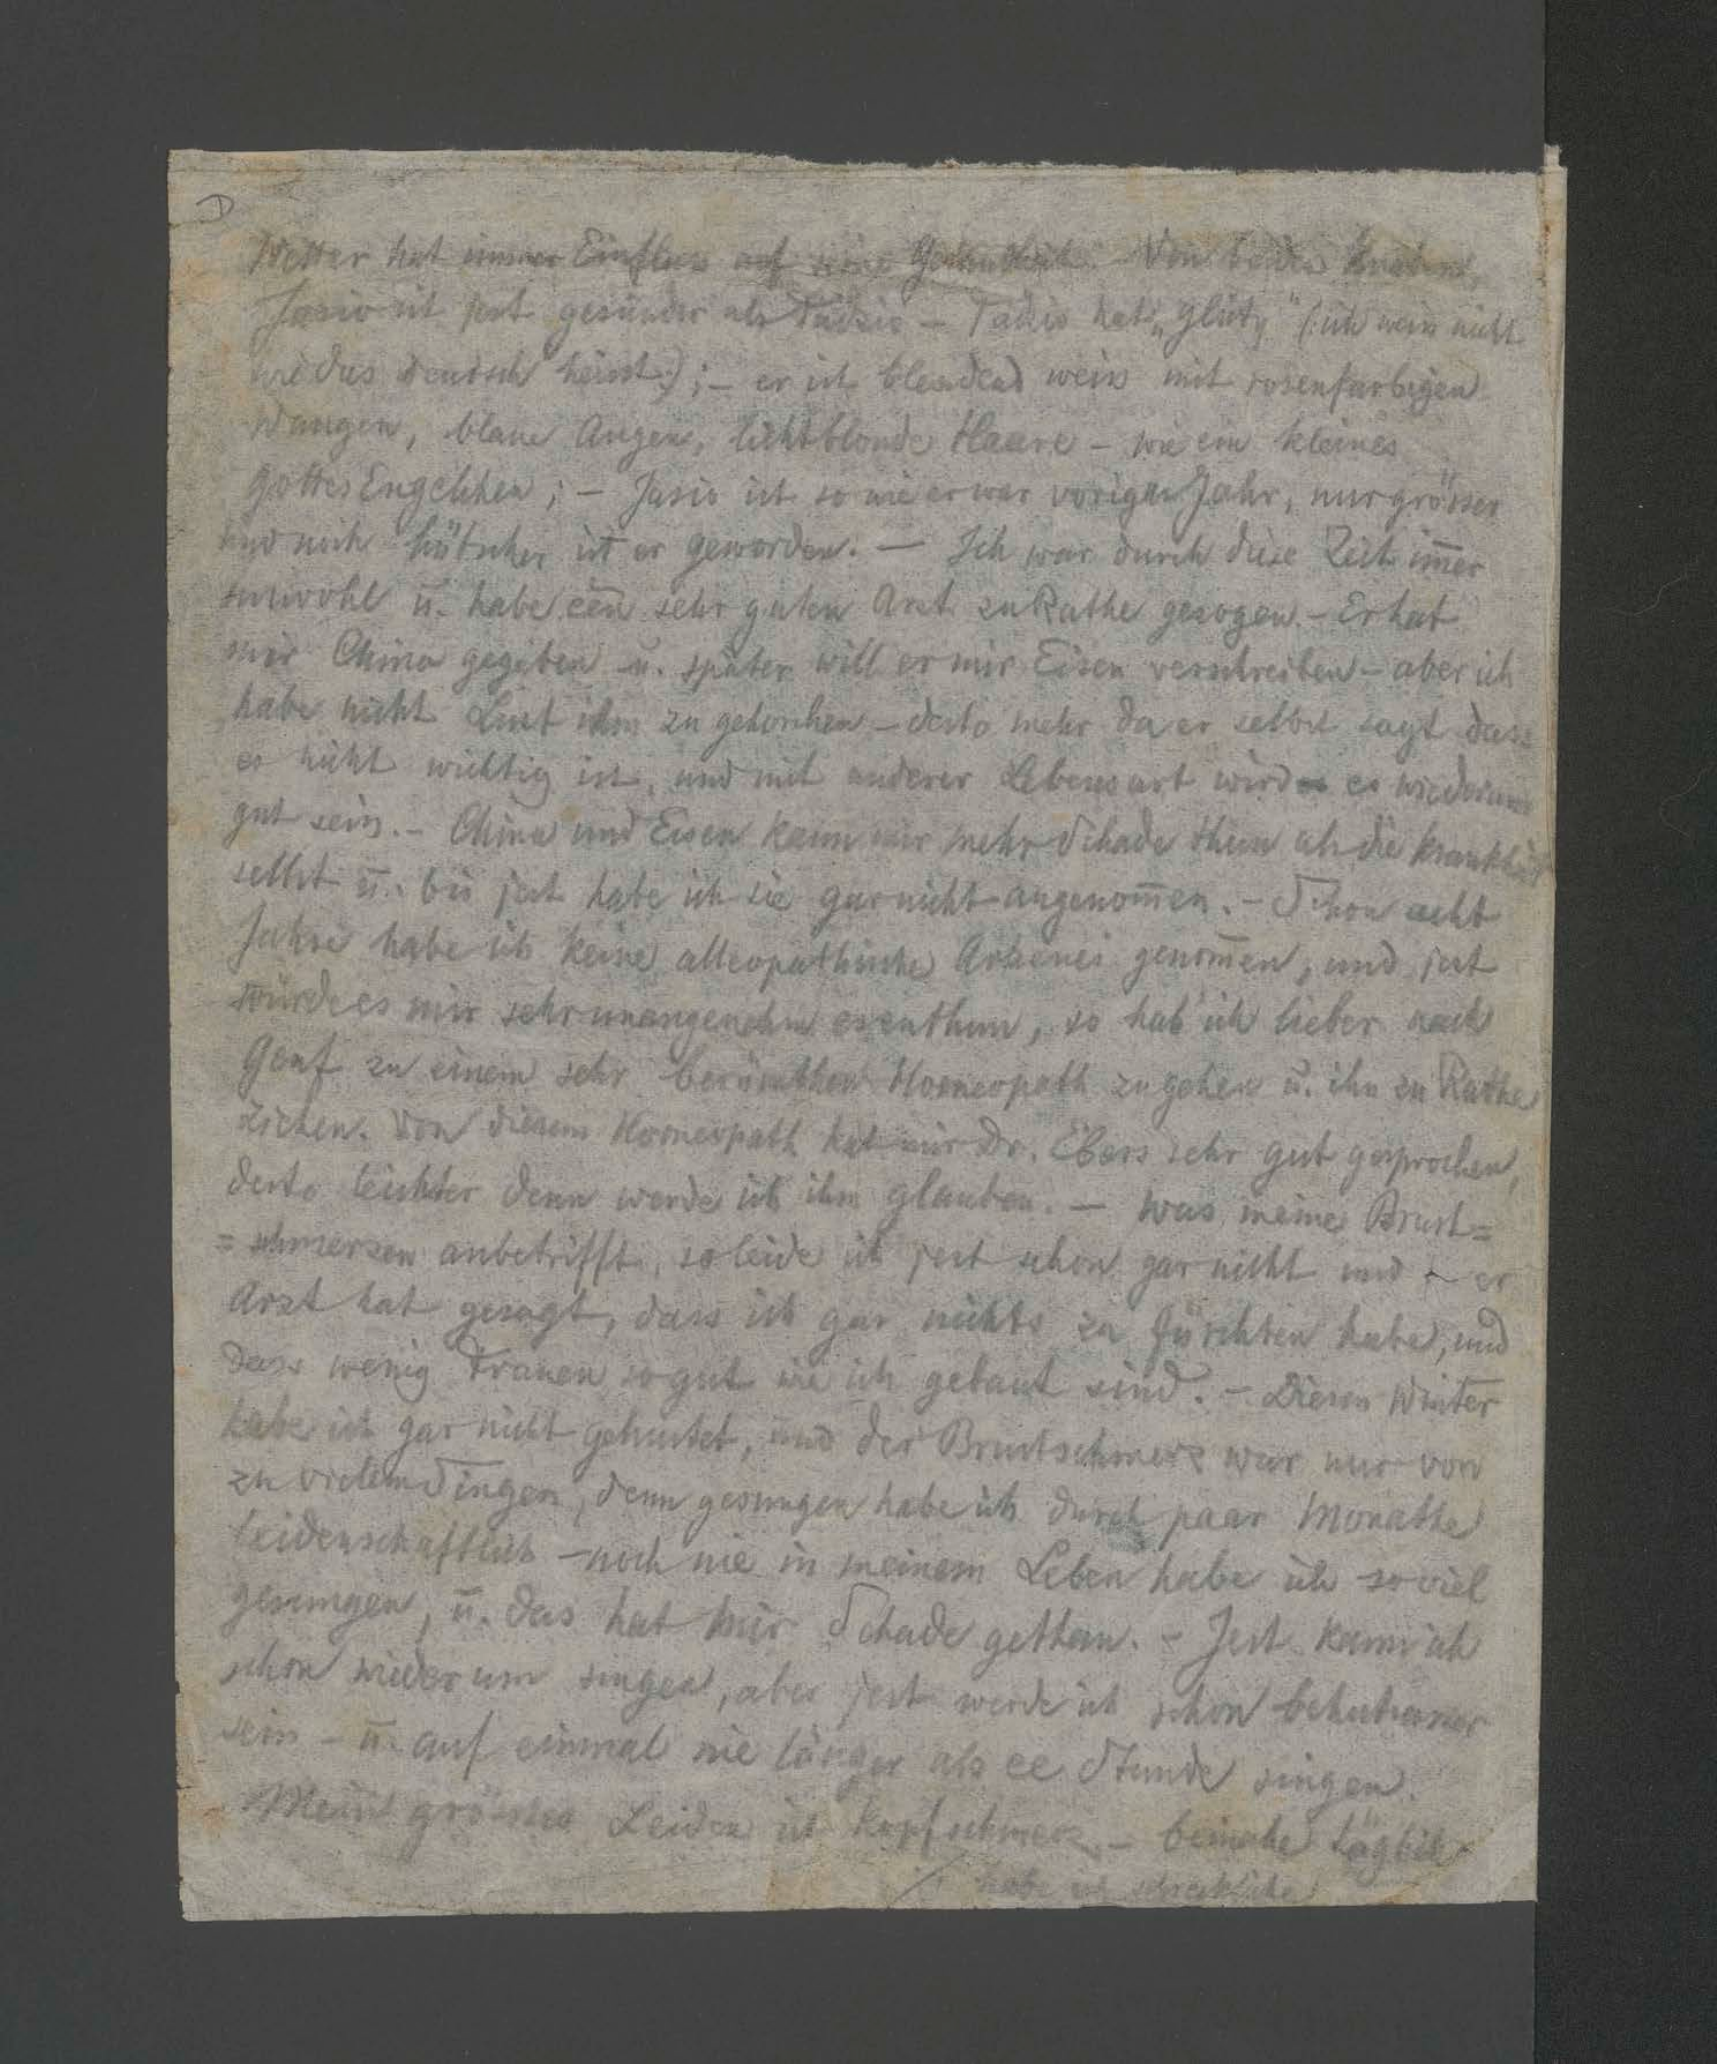 Wetter hat immer Einfluss auf seine Gesundheit. Von beiden Knaben,
Jasio ist jest gesünder als Tadzio – Tadzio hat „glisty" (: ich weis nicht
wie das deutsch heisst :) ; – er ist blendend weis mit rosenfarbigen
Wangen, blaue Augen, lichtblonde Haare – wie ein kleines
Gottes Engelchen ; – Jasio ist so wie er war voriges Jahr, nur grösser
und noch hübscher ist er geworden. – Ich war durch diese Zeit im̄er
unwohl u. habe een sehr guten Arzt zu Rathe gezogen. – Er hat
mir China gegeben u. später will er mir Eisen verschreiben – aber ich
habe nicht Lust ihm zu gehorchen – desto mehr da er selbst sagt dass
es nicht wichtig ist, und mit anderer Lebensart wird es wiederum
gut sein. – China und Eisen kann mir mehr Schade thun als die Krankheit
selbst u. bis jest habe ich sie gar nicht angenom̄en. – Schon acht
Jahre habe ich keine alleopathische Arzenei genom̄en, und jest
würde es mir sehr unangenehm es zu thun, so hab' ich lieber nach
Genf zu einem sehr berümthen Homeopath zu gehen u. ihn zu Rathe
ziehen. Von diesem Homeopath hat mir Dr. Ebers sehr gut gesprochen,
desto leichter denn werde ich ihm glauben. – Was meine Brust=
=schmerzen anbetrifft, so leide ich jest schon gar nicht und er
Arzt hat gesagt, dass ich gar nichts zu fürchten habe, und
dass wenig Frauen so gut wie ich gebaut sind. – Diesen Winter
habe ich gar nicht gehustet, und der Brustschmerz war nur von
zu vielem Singen, denn gesungen habe ich durch paar Monathe
leidenschaftlich – noch nie in meinem Leben habe ich so viel
gesungen, u. das hat mir Schade gethan. – Jest kann ich
schon wiederum singen, aber jest werde ich schon behutsamer
sein – u. auf einmal nie länger als ee Stunde singen.
Mein grösstes Leiden ist Kopfschmerz – beinahe täglich
habe ich schreckliche